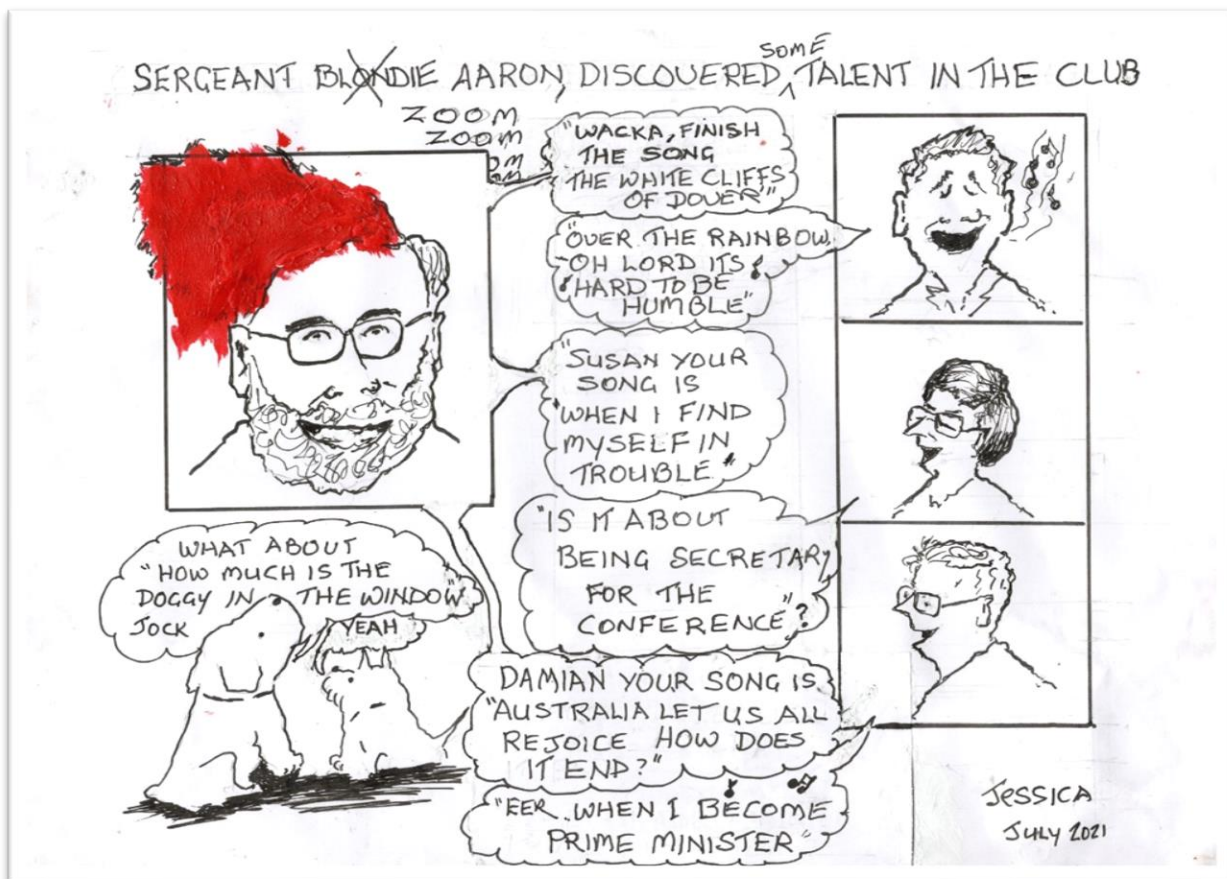 SOME
SERGEANT BLONDIE AARON, DISCOVERED TALENT IN THE CLUB
ZOOM
ZOOM
OM
"WACKA, FINISH
THE SONG
THE WHITE CLIFFS
OF DOVER"
"OVER THE RAINBOW
OH LORD ITS
HARD TO BE
HUMBLE"
"SUSAN YOUR
SONG IS
WHEN I FIND
MYSELF IN
TROUBLE"
"IS IT ABOUT
BEING SECRETARY
FOR THE
CONFERENCE"?
WHAT ABOUT
"HOW MUCH IS THE
DOGGY IN THE WINDOW"
JOCK
YEAH
DAMIAN YOUR SONG IS
"AUSTRALIA LET US ALL
REJOICE HOW DOES
IT END?"
"EER. WHEN I BECOME
PRIME MINISTER"
JESSICA
JULY 2021